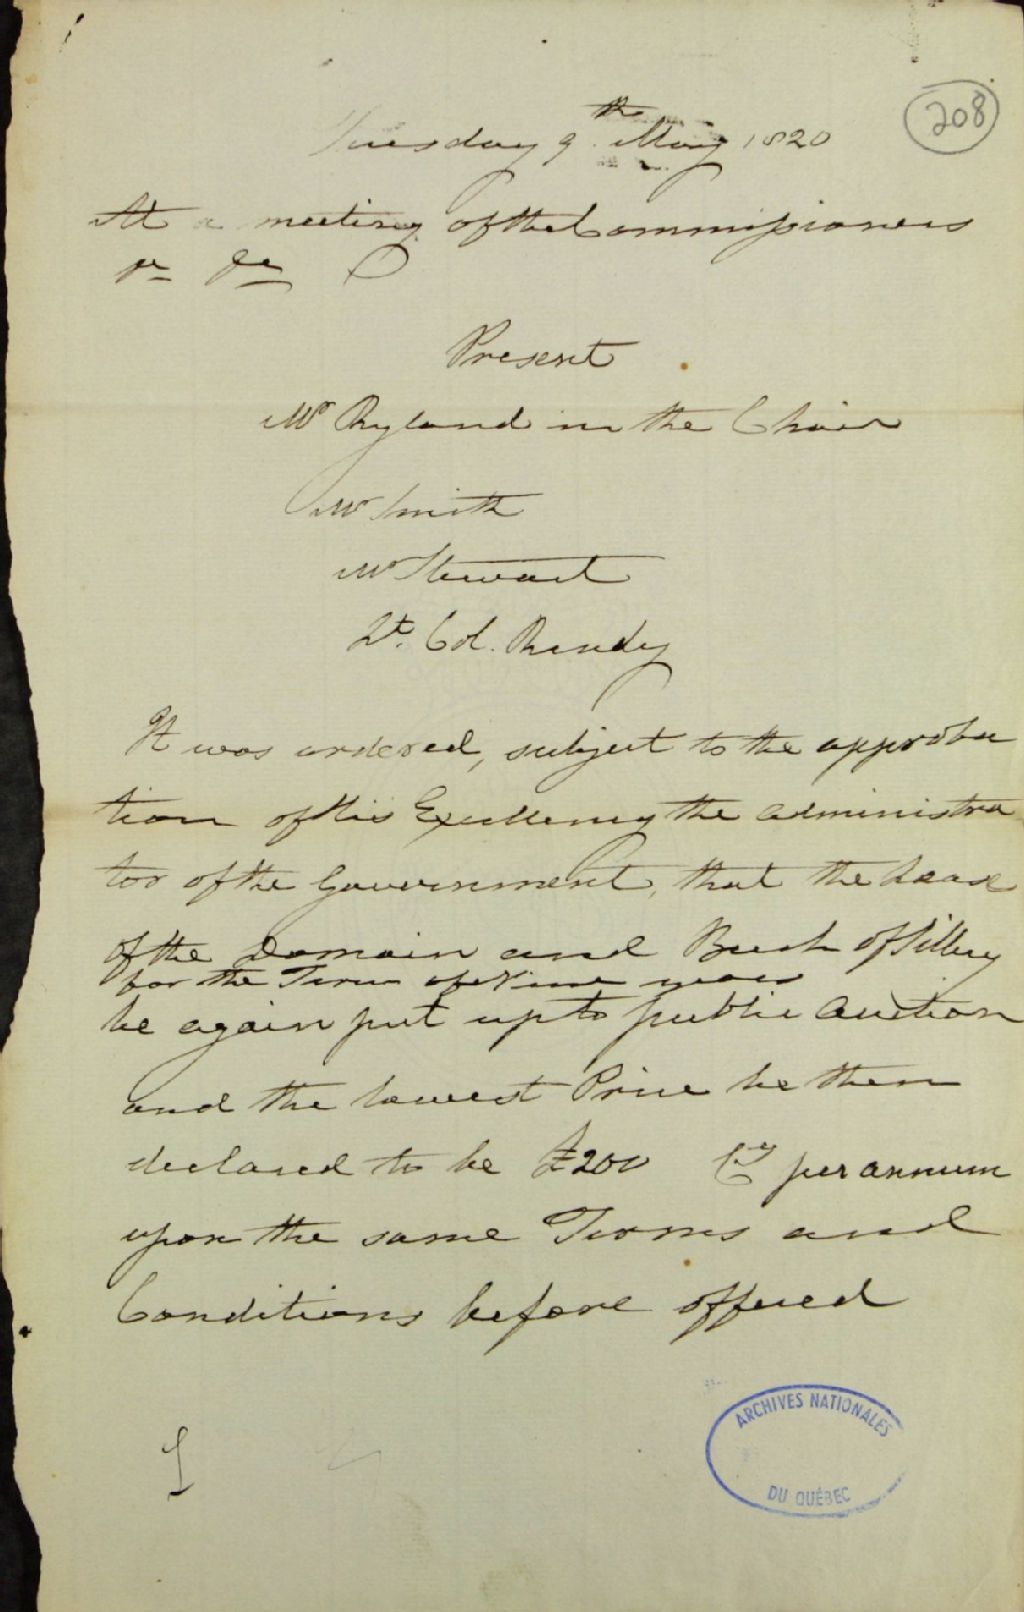 208
Tuesday 9th May 1820
At a meeting of the Commissioners
Present
Mr Ryland in the Chair
Mr Smith
Mr Stewart
Lt. Col. Ready
It was ordered, subject to the approba
tion of His Excellency the administra
tor of the Government, that the Lease
of the Domain and Bush of Sillery
for the Term of Nine years
be again put up to public Auction
and the lowest Price be then
declared to be £200 Cy per annum
upon the same Terms and
Conditions before offered
ARCHIVES NATIONALES
DU QUÉBEC